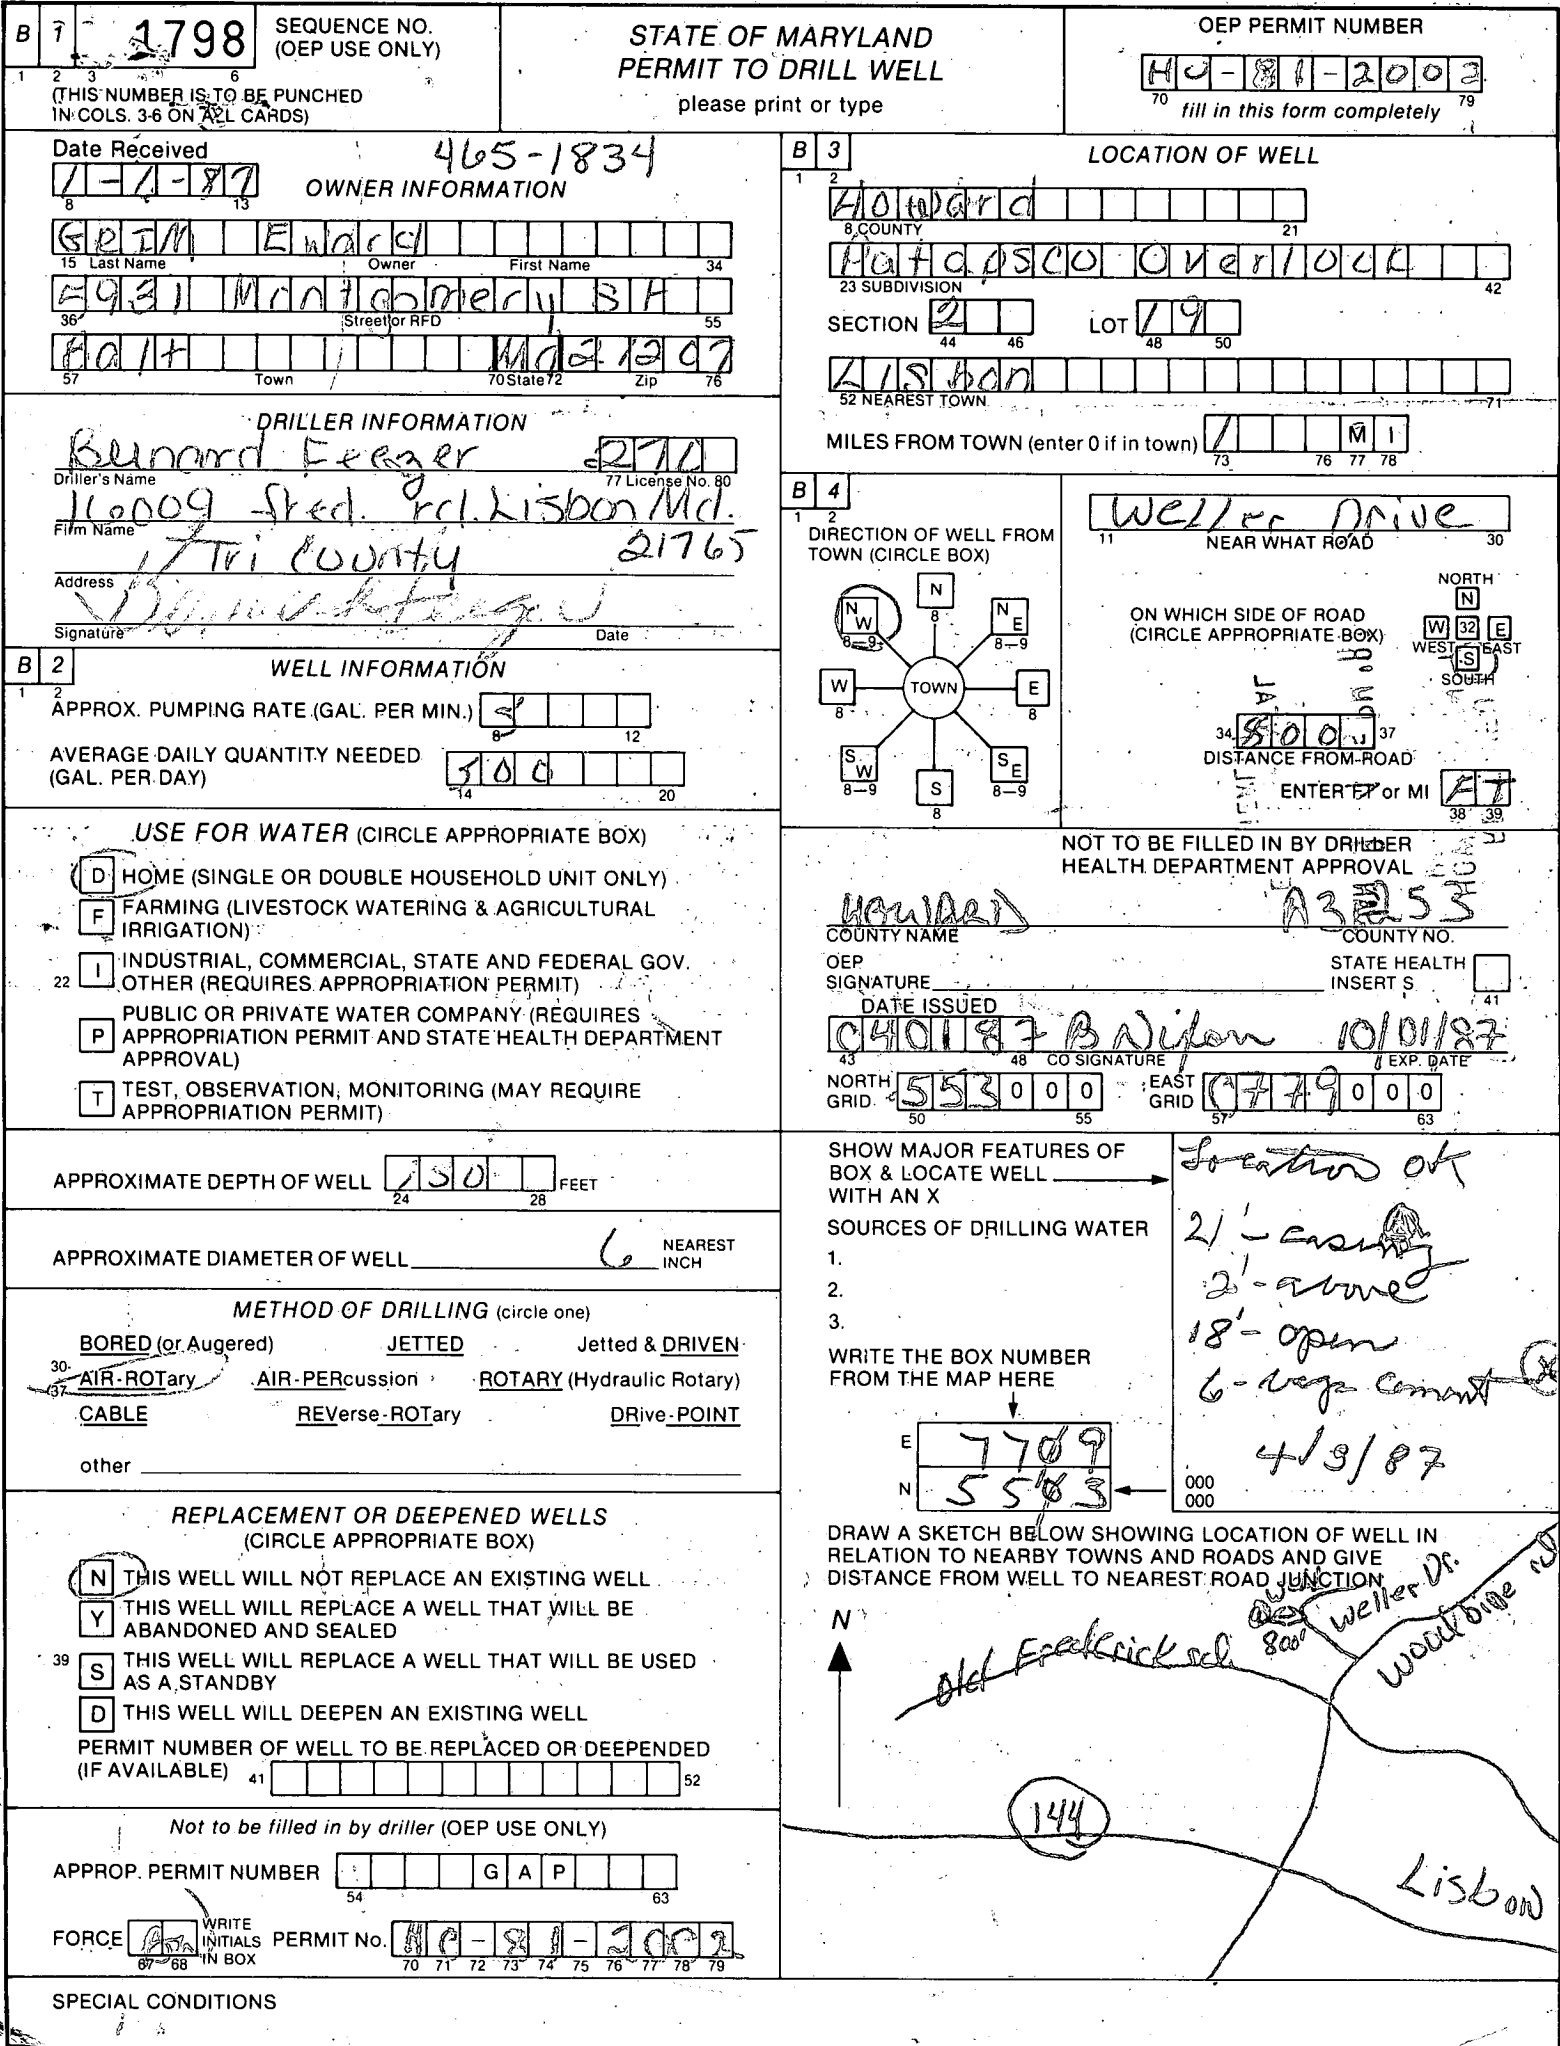 B 1 1798 SEQUENCE NO. (OEP USE ONLY)
1 2 3 6
(THIS NUMBER IS TO BE PUNCHED
IN COLS. 3-6 ON ALL CARDS)
STATE OF MARYLAND
PERMIT TO DRILL WELL
please print or type
OEP PERMIT NUMBER
HO-81-2002
70 79
fill in this form completely
Date Received
465-1834
1-1-87
8 13
OWNER INFORMATION
GEIM Eward
15 Last Name Owner First Name 34
5931 Montgomery St
36 Street or RFD 55
Balt Md 21207
57 Town 70 State 72 Zip 76
DRILLER INFORMATION
Feezer 270
Driller's Name 77 License No. 80
16009 fred. rd. Lisbon Md.
Firm Name
Tri County 21765
Address
Signature Date
B 2 WELL INFORMATION
1 2
APPROX. PUMPING RATE (GAL. PER MIN.)
8 12
AVERAGE DAILY QUANTITY NEEDED
(GAL. PER DAY) 500
14 20
USE FOR WATER (CIRCLE APPROPRIATE BOX)
D HOME (SINGLE OR DOUBLE HOUSEHOLD UNIT ONLY)
F FARMING (LIVESTOCK WATERING & AGRICULTURAL
IRRIGATION)
22 I INDUSTRIAL, COMMERCIAL, STATE AND FEDERAL GOV.
OTHER (REQUIRES APPROPRIATION PERMIT)
P PUBLIC OR PRIVATE WATER COMPANY (REQUIRES
APPROPRIATION PERMIT AND STATE HEALTH DEPARTMENT
APPROVAL)
T TEST, OBSERVATION, MONITORING (MAY REQUIRE
APPROPRIATION PERMIT)
APPROXIMATE DEPTH OF WELL 150 FEET
24 28
APPROXIMATE DIAMETER OF WELL 6 NEAREST INCH
METHOD OF DRILLING (circle one)
BORED (or Augered) JETTED Jetted & DRIVEN
30-37 AIR-ROTary AIR-PERcussion ROTARY (Hydraulic Rotary)
CABLE REVerse-ROTary DRive-POINT
other
REPLACEMENT OR DEEPENED WELLS
(CIRCLE APPROPRIATE BOX)
N THIS WELL WILL NOT REPLACE AN EXISTING WELL
Y THIS WELL WILL REPLACE A WELL THAT WILL BE
ABANDONED AND SEALED
39 S THIS WELL WILL REPLACE A WELL THAT WILL BE USED
AS A STANDBY
D THIS WELL WILL DEEPEN AN EXISTING WELL
PERMIT NUMBER OF WELL TO BE REPLACED OR DEEPENDED
(IF AVAILABLE) 41 52
Not to be filled in by driller (OEP USE ONLY)
APPROP. PERMIT NUMBER G A P
54 63
FORCE WRITE INITIALS IN BOX PERMIT No. HO-81-2002
67 68 70 71 72 73 74 75 76 77 78 79
SPECIAL CONDITIONS
B 3 LOCATION OF WELL
1 2
Howard
8 COUNTY 21
Patapsco Overlook
23 SUBDIVISION 42
SECTION 2 LOT 19
44 46 48 50
Lisbon
52 NEAREST TOWN 71
MILES FROM TOWN (enter 0 if in town) 1 MI
73 76 77 78
B 4
1 2
DIRECTION OF WELL FROM
TOWN (CIRCLE BOX)
N 8
NW 8-9
NE 8-9
W 8
TOWN
E 8
SW 8-9
SE 8-9
S 8
Weller Drive
11 NEAR WHAT ROAD 30
ON WHICH SIDE OF ROAD
(CIRCLE APPROPRIATE BOX)
NORTH
N
W 32 E
WEST EAST
S
SOUTH
34 800 37
DISTANCE FROM ROAD
ENTER FT or MI FT
38 39
NOT TO BE FILLED IN BY DRILLER
HEALTH DEPARTMENT APPROVAL
HOWARD
COUNTY NAME COUNTY NO.
OEP
SIGNATURE
STATE HEALTH
INSERT S
41
DATE ISSUED
040187 B Nixon 10/01/87
43 48 CO SIGNATURE EXP. DATE
NORTH GRID 553000 EAST GRID 0779000
50 55 57 63
SHOW MAJOR FEATURES OF
BOX & LOCATE WELL
WITH AN X
SOURCES OF DRILLING WATER
1.
2.
3.
WRITE THE BOX NUMBER
FROM THE MAP HERE
E 7709
N 5503
000
000
Location OK
21' - casing
2' - above
18' - open
6 - bags cement
4/3/87
DRAW A SKETCH BELOW SHOWING LOCATION OF WELL IN
RELATION TO NEARBY TOWNS AND ROADS AND GIVE
DISTANCE FROM WELL TO NEAREST ROAD JUNCTION
N
Old Frederick rd
well
800'
Weller Dr.
Woodbine rd
144
Lisbon